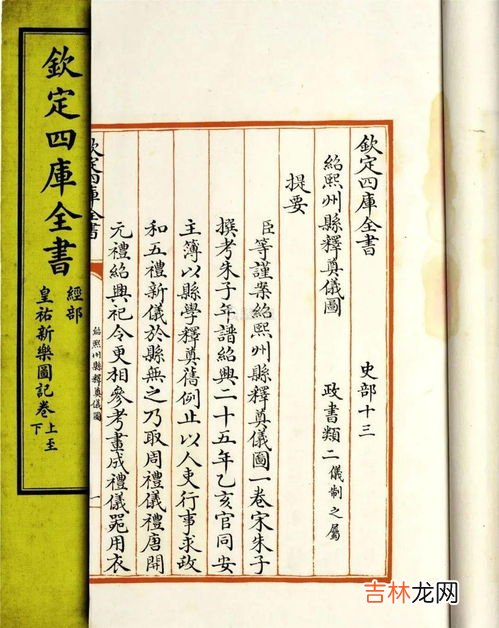 欽定四庫全書
經部
皇祐新樂圖記卷上至下
欽定四庫全書 史部十三
紹熙州縣釋奠儀圖 政書類二儀制之屬
提要
臣等謹案紹熙州縣釋奠儀圖一卷宋朱子
撰考朱子年譜紹興二十五年乙亥官同安
主簿以縣學釋奠舊例止以人吏行事求政
和五禮新儀於縣無之乃取周禮儀禮唐開
元禮紹興祀令更相參考畫成禮儀器用衣
欽定四庫全書
紹熙州縣釋奠儀圖
一
吉林龙网